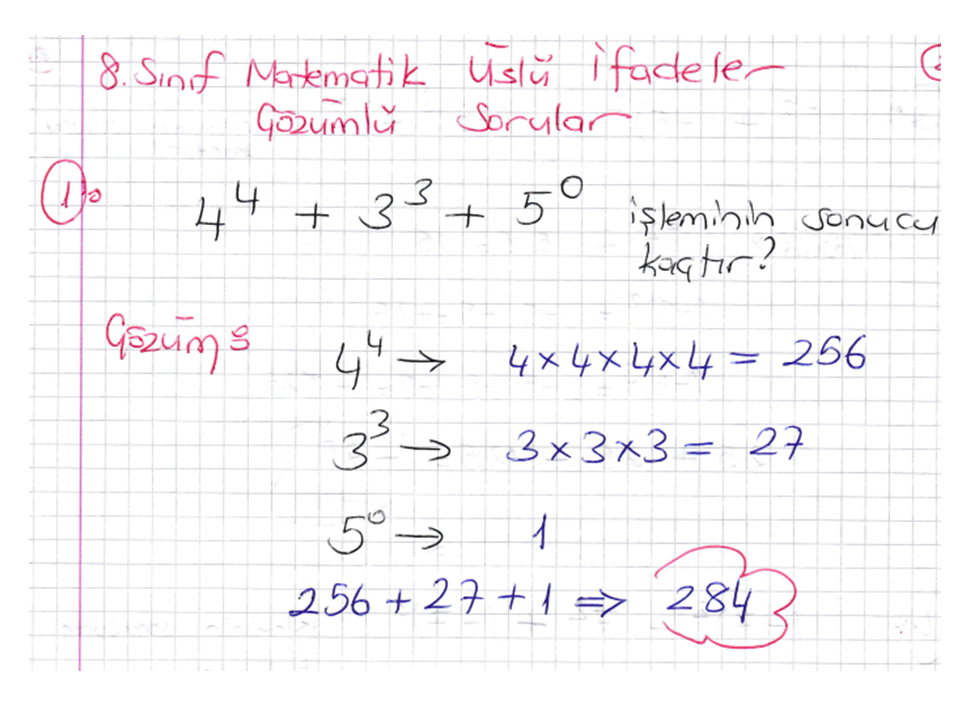 8. Sınıf Matematik Üslü İfadeler
Çözümlü Sorular
1) 4⁴ + 3³ + 5⁰ işleminin sonucu
kaçtır?
Çözüm:
4⁴ → 4 x 4 x 4 x 4 = 256
3³ → 3 x 3 x 3 = 27
5⁰ → 1
256 + 27 + 1 ⇒ 284